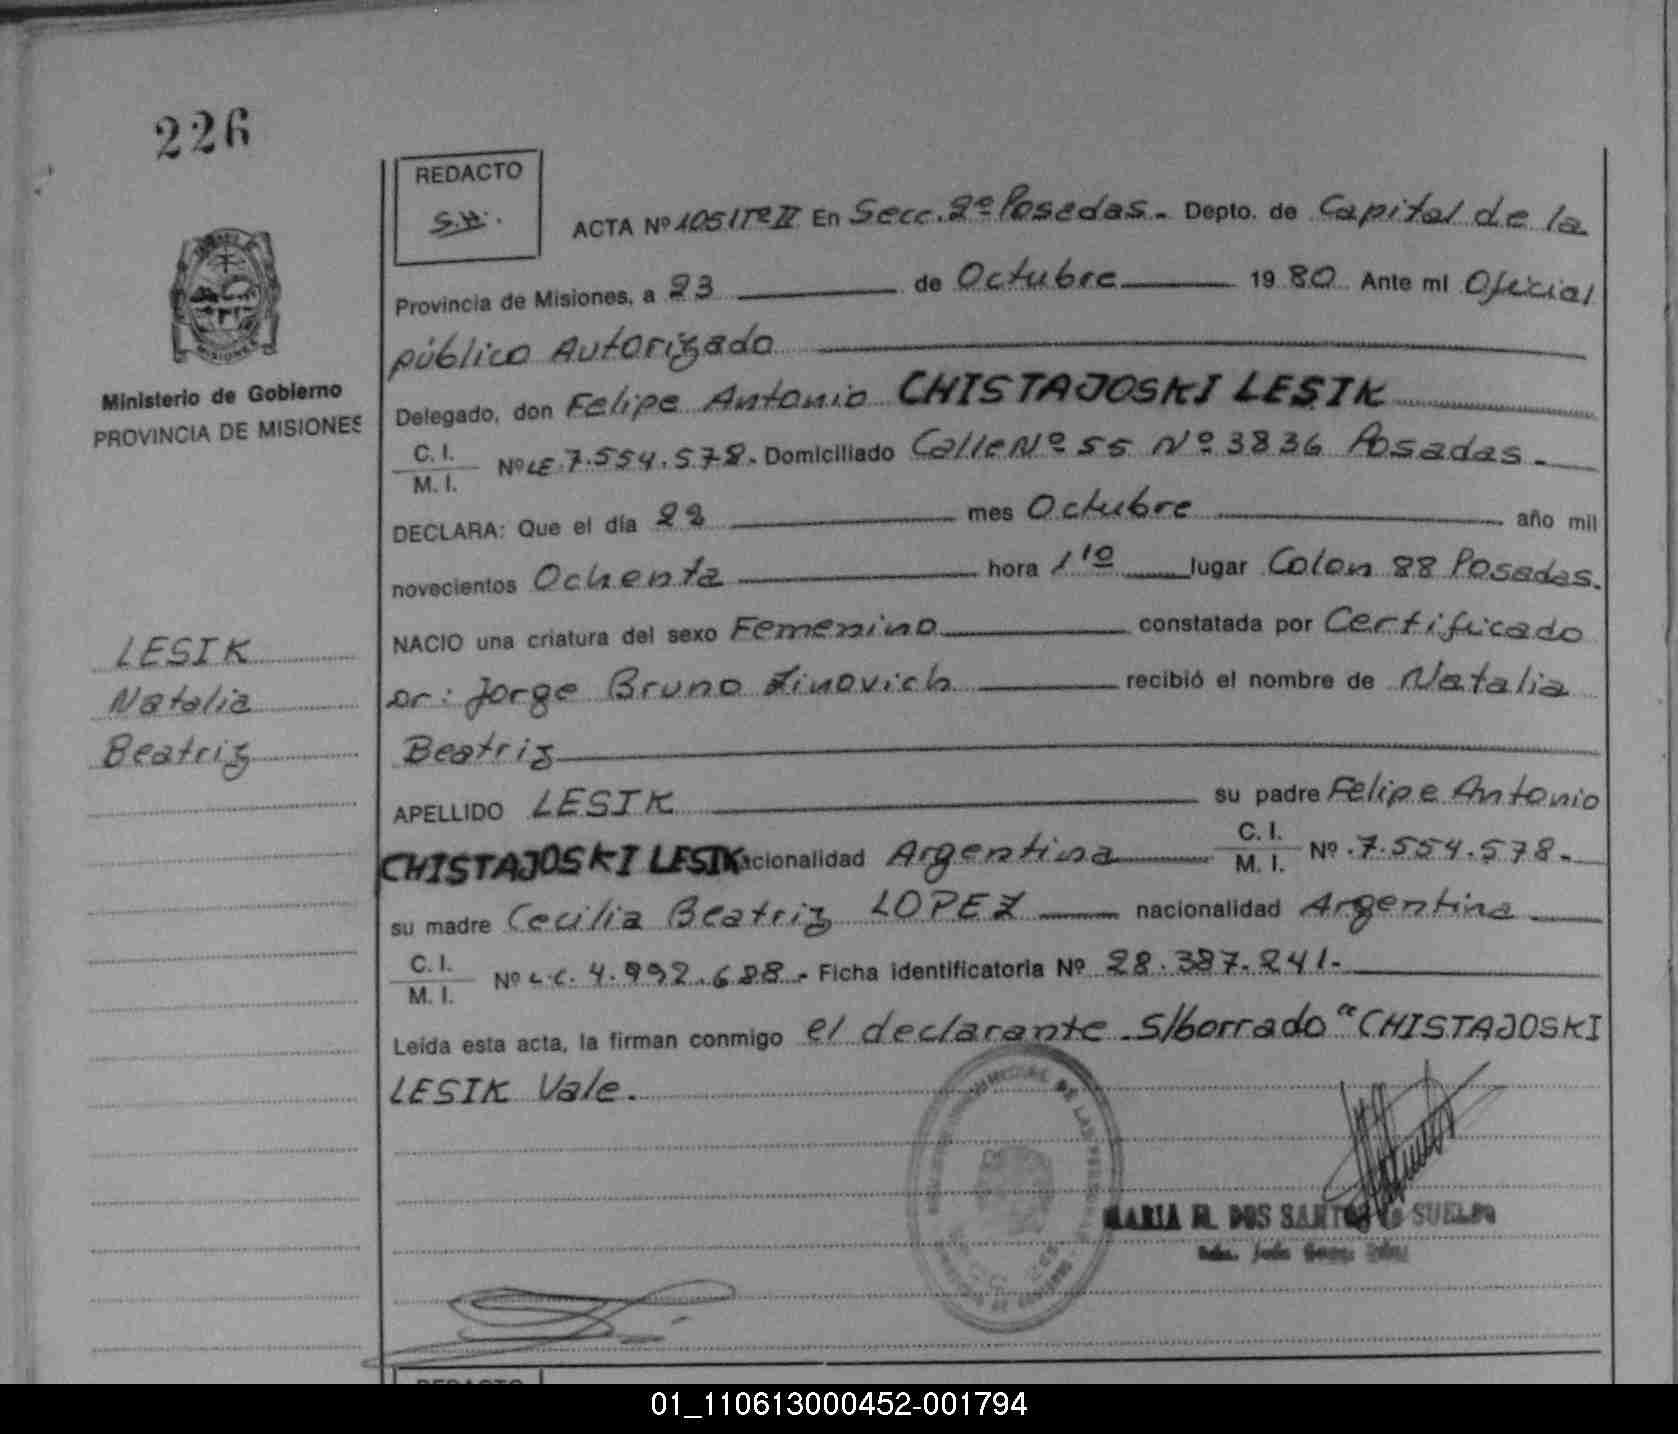 226
REDACTO
S.H.
ACTA Nº 1051 Tº II En Secc. 2º Posadas. Depto. de Capital de la
Provincia de Misiones, a 23 de Octubre 1980 Ante mí Oficial
público Autorizado
Delegado, don Felipe Antonio CHISTAJOSKI LESIK
C. I.
M. I. Nº LE 7.554.578. Domiciliado Calle Nº 55 Nº 3836 Posadas.
DECLARA: Que el día 22 mes Octubre año mil
novecientos Ochenta hora 1 10 lugar Colon 88 Posadas.
NACIO una criatura del sexo Femenino constatada por Certificado
Dr: Jorge Bruno Zinovich recibió el nombre de Natalia
Beatriz
APELLIDO LESIK su padre Felipe Antonio
CHISTAJOSKI LESIK nacionalidad Argentina C. I.
M. I. Nº 7.554.578.
su madre Cecilia Beatriz LOPEZ nacionalidad Argentina
C. I.
M. I. Nº L.C. 4.992.688. Ficha identificatoria Nº 28.387.241.
Leída esta acta, la firman conmigo el declarante. S/borrado "CHISTAJOSKI
LESIK Vale.
MISIONES
Ministerio de Gobierno
PROVINCIA DE MISIONES
LESIK
Natalia
Beatriz
MARIA M. DOS SANTOS SUELDO
REDACTO
01_110613000452-001794